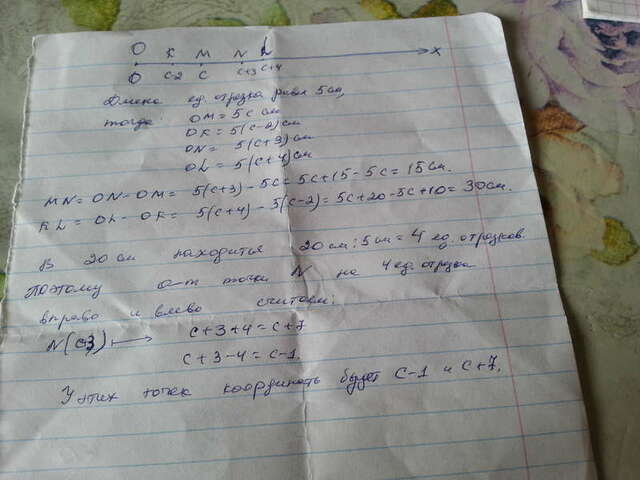 O K M N L
O c-2 c c+3 c+4 x
Длина ед. отрезка равна 5см,
тогда: OM = 5c см
OK = 5(c-2) см
ON = 5(c+3) см
OL = 5(c+4) см
MN = ON - OM = 5(c+3) - 5c = 5c + 15 - 5c = 15 см.
KL = OL - OK = 5(c+4) - 5(c-2) = 5c + 20 - 5c + 10 = 30 см.
В 20 см находится 20 см : 5 см = 4 ед. отрезков.
Поэтому о-т точки N на 4 ед. отрезка
вправо и влево считаем:
N(c3) → c + 3 + 4 = c + 7
c + 3 - 4 = c - 1.
У этих точек координаты будет c-1 и c+7.